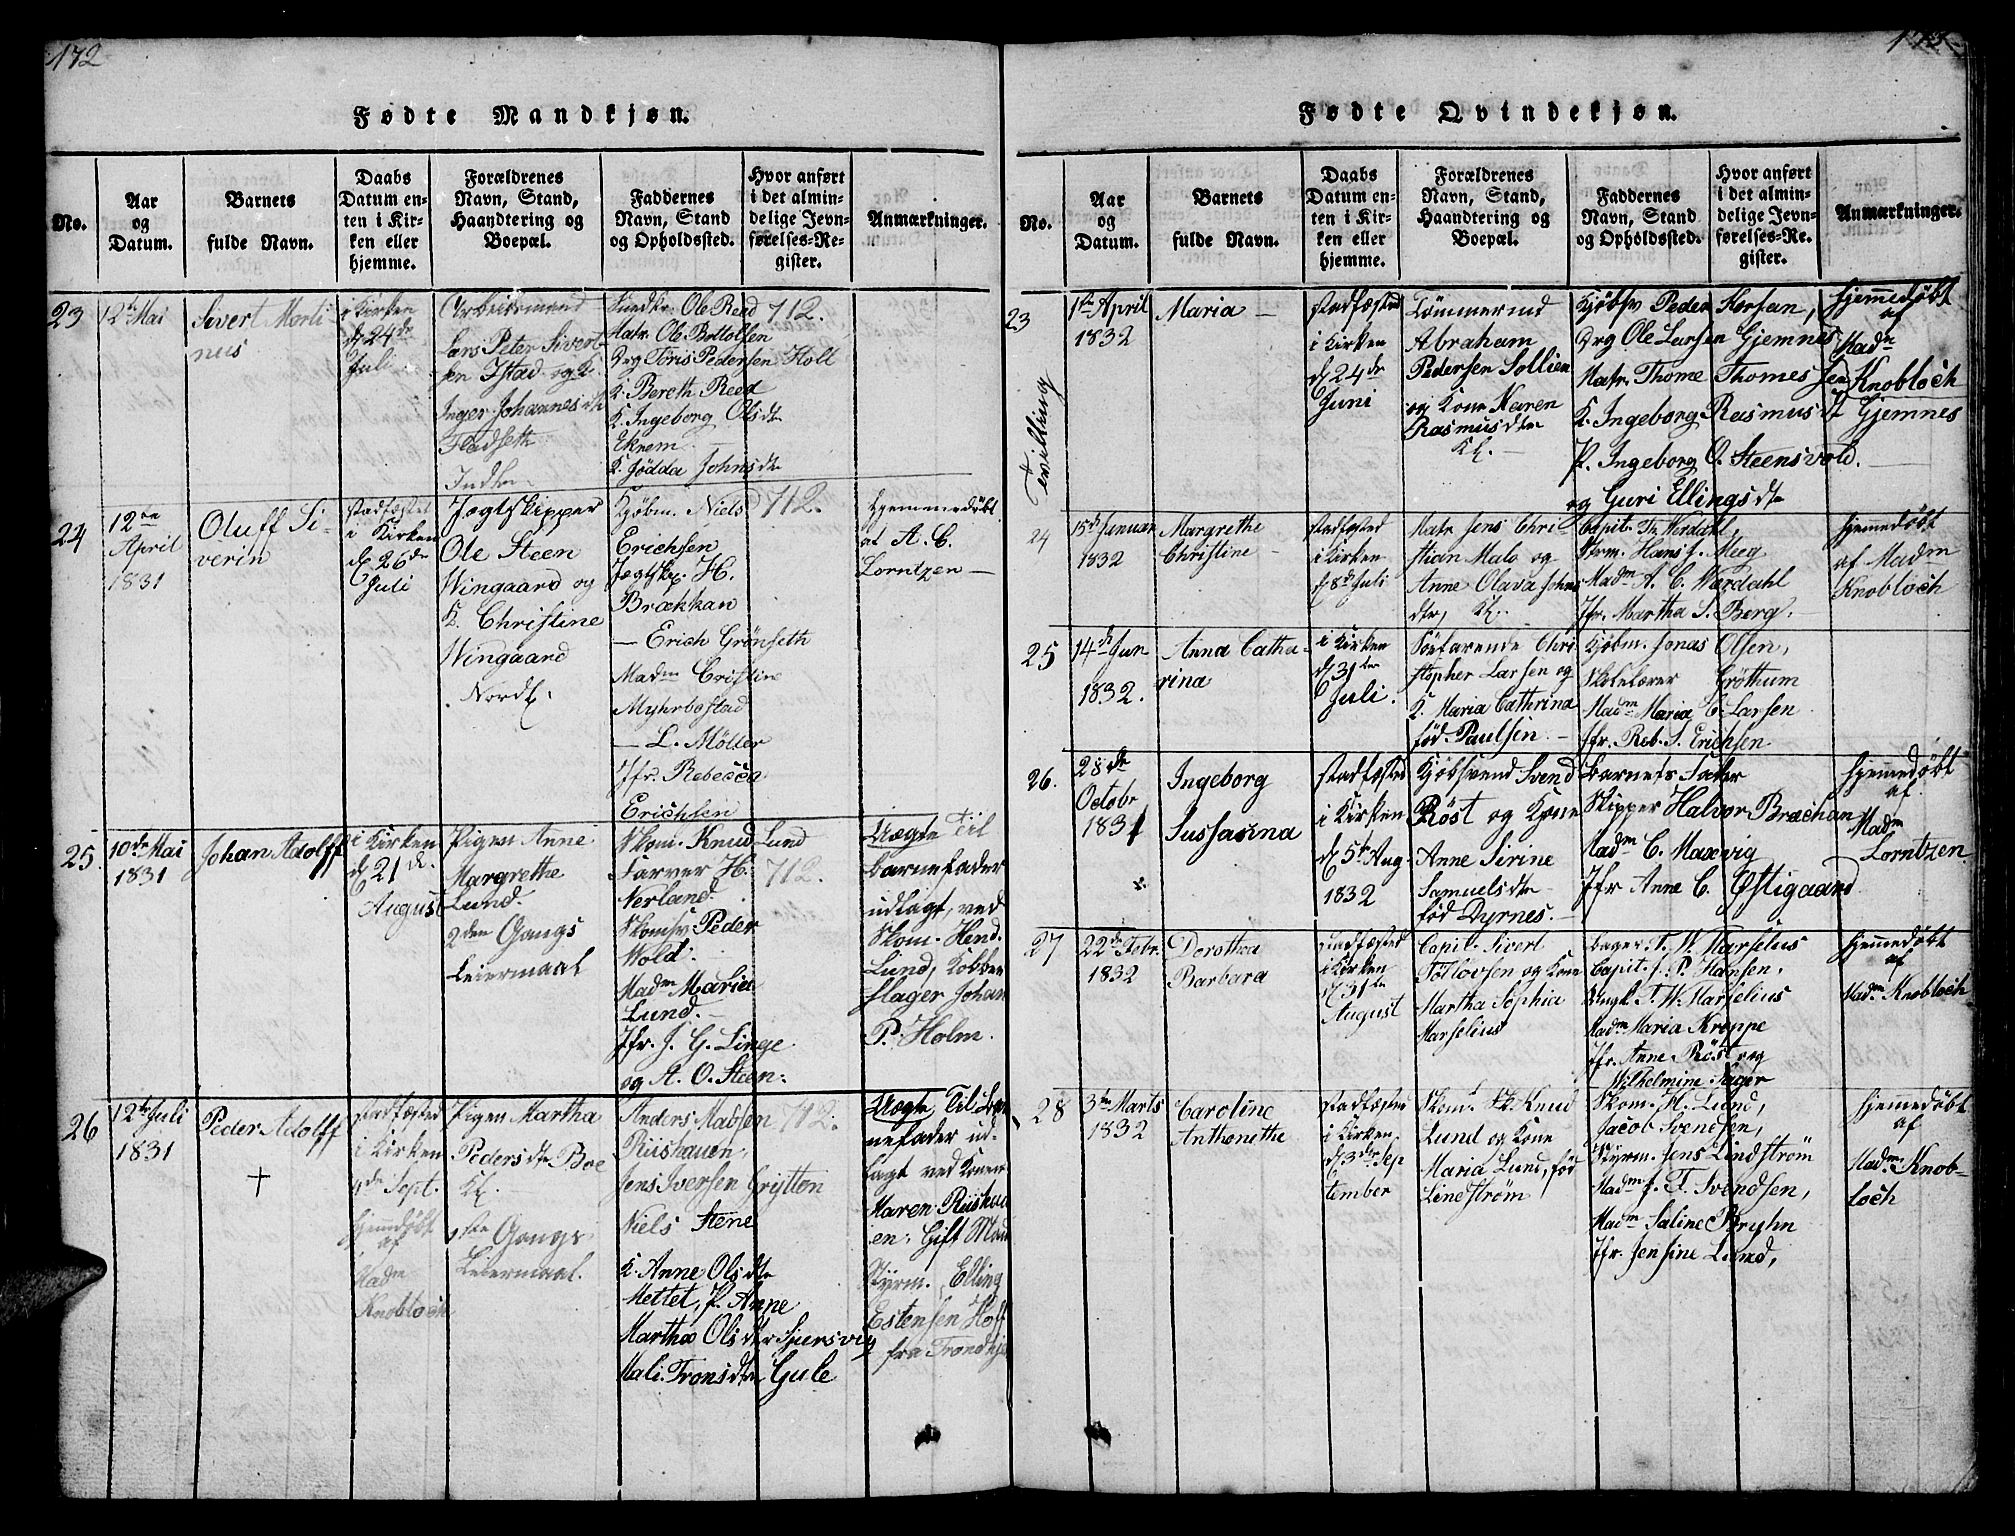 172
Fødte Mandkjøn.
No.
Aar
og
Datum.
Barnets
fulde Navn.
Daabs
Datum en-
ten i Kir-
ken eller
hjemme.
Forældrenes
Navn, Stand,
Haandtering og
Boepæl.
Faddernes
Navn, Stand
og Opholdssted.
Hvor anført
i det almin-
delige Jevn-
førelses-Re-
gister.
Anmærkninger.
23
12te Mai
Sivert Morti-
nus
i Kirken
d 24de
Juli
Arbeidsmand
Lars Peter Sivert-
sen Istad og K.
Inger Johannesdtr
Flodseth
Ole Reed
Matr. Ole Bottolfsen
Drg Toris Pedersen Holt
K. Bereth Reed
K. Ingeborg Olsdtr
Ekrem
K. Jødda Johnsdtr
712.
24
12te
April
1831
Oluff Si-
verin
stadfæstet
i Kirken
d 26de
Juli
Jegtskipper
Ole Steen
Wingaard og
K. Christine
Wingaard
Nordl.
Kjøbm. Niels
Erichsen
Jægtsk. H.
Brækkan
— Erich Grönseth
Madm Cristine
Myhrbostad
— L. Möller
Jfr. Rebecca
Erichsen
712.
Hjemmedøbt
af A. C.
Lorntzen —
25
10de Mai
1831
Johan Adolff
i Kirken
d 21de
August
Pigen Anne
Margrethe
Lund.
2den Gangs
Leiermaal
Skom. Knud Lund
Farver H.
Nerland.
Skomsv Peder
Wold.
Madm Maria
Lund. —
Jfr. J. G. Linge
og A. O. Steen.
712.
Uægte Til
Barnefader
udlagt, ved
Skom. Hend.
Lund, Kobber-
slager Johan
P. Holm.
26
12te Juli
1831
Peder Adolff
+
stadfæsted
i Kirken
4de Sept.
hjemedøbt
af
Madm
Knobloch
Pigen Martha
Pedersdtr Boe
Kl. —
1ste Gangs
Leiermaal.
Anders Madsen
Riishauen,
Jens Iversen Grytten
Niels Stene
K. Anne Olsdtr
Mettet, P. Anne
Martha Olsdtr Sjursvig
Mali Tronsdtr Gule
712.
Uægte Til Bar-
nefader ud-
lagt ved Konen
Maren Riishau-
en: Gift Mand
Styrm. Elling
Estensen Hoff
fra Trondhj
173
Fødte Qvindekjøn.
No.
Aar
og
Datum.
Barnets
fulde Navn.
Daabs
Datum en-
ten i Kir-
ken eller
hjemme.
Forældrenes
Navn, Stand,
Haandtering og
Boepæl.
Faddernes
Navn, Stand
og Opholdssted.
Hvor anført
i det almin-
delige Jevn-
førelses-Re-
gister.
Anmærkninger.
23
Tvilling
1ste April
1832
Maria —
stadfæsted
i Kirken
d 24de
Juni
Tömmermd
Abraham
Pedersen Sollien
og Kone Maren
Rasmusdtr
Kl. —
Kjöbsv Peder Horsan,
Drg Ole Larsen Gjemnes
Matr. Thome Thomessen
K. Ingeborg Rasmusdt Gjemnes
P. Ingeborg O. Steensvold.
og Guri Ellingsdtr
hjemmedøbt
af
Madm
Knobloch
24
15de Januar
1832
Margrethe
Christine —
stadfæsted
i Kirken
d 8de Juli
Matr Jens Chri-
stian Malo og
Anne Olava Johns
dtr, Kl.
Capit. Werdahl,
Styrm. Hans J. Meeg
Madm A. C. Werdahl
Jfr. Martha S. Berg.
hjemedøbt
af Madm
Knobloch
25
14de Jun
1832.
Anna Catha-
rina
i Kirken
d 31te
Juli.
Söefarende Chri-
stopher Larsen og
K. Maria Cathrina
fød. Paulsen. —
Kjöbm. Jonas Olsen,
Skolelærer Gröthum
Madm Maria C. Larsen
Jfr. Reb. S. Erichsen
26.
28de
Octobr
1831
Ingeborg
Sussasina
stadfæsted
i Kirken
d 5te Aug.
1832
Kjöbsvend Svend
Röst og Kone
Anne Sirine
Samuelsdtr
fød Dyrnes. —
Barnets Fader
Skipper Halvor Bræchan
Madm C. Maxvig
Jfr Anne C. Østigaard
hjemedøbt
af
Madm
Lorntzen
27
22de Febr.
1832
Dorothea
Barbara
stadfæsted
i Kirken
d 31te
August
Capit. Sivert
Tollovsen og Kone
Martha Sophia
Marselius
Bager T. W. Marselius
Capit. J. P. Hansen,
Ungk. T. W. Marselius
Madm Maria Kroppe
Jfr. Anne Röst og
Wilhelmine Sager
hjemedøbt
af
Madm Knobloch
28
3de Marts
1832
Caroline
Anthonethe
stadfæsted
i Kirken
d 3die Sep
tember
Skom. Knud
Lund og Kone
Maria Lund, fød
Lindström
Skom. H. Lund,
Jacob Svendsen,
Styrm. Jens Lindström
Madm J. T. Svendsen,
Madm Saline Bryhn
Jfr. Jensine Lund,
hjemedøbt
af
Madm. Knob-
loch